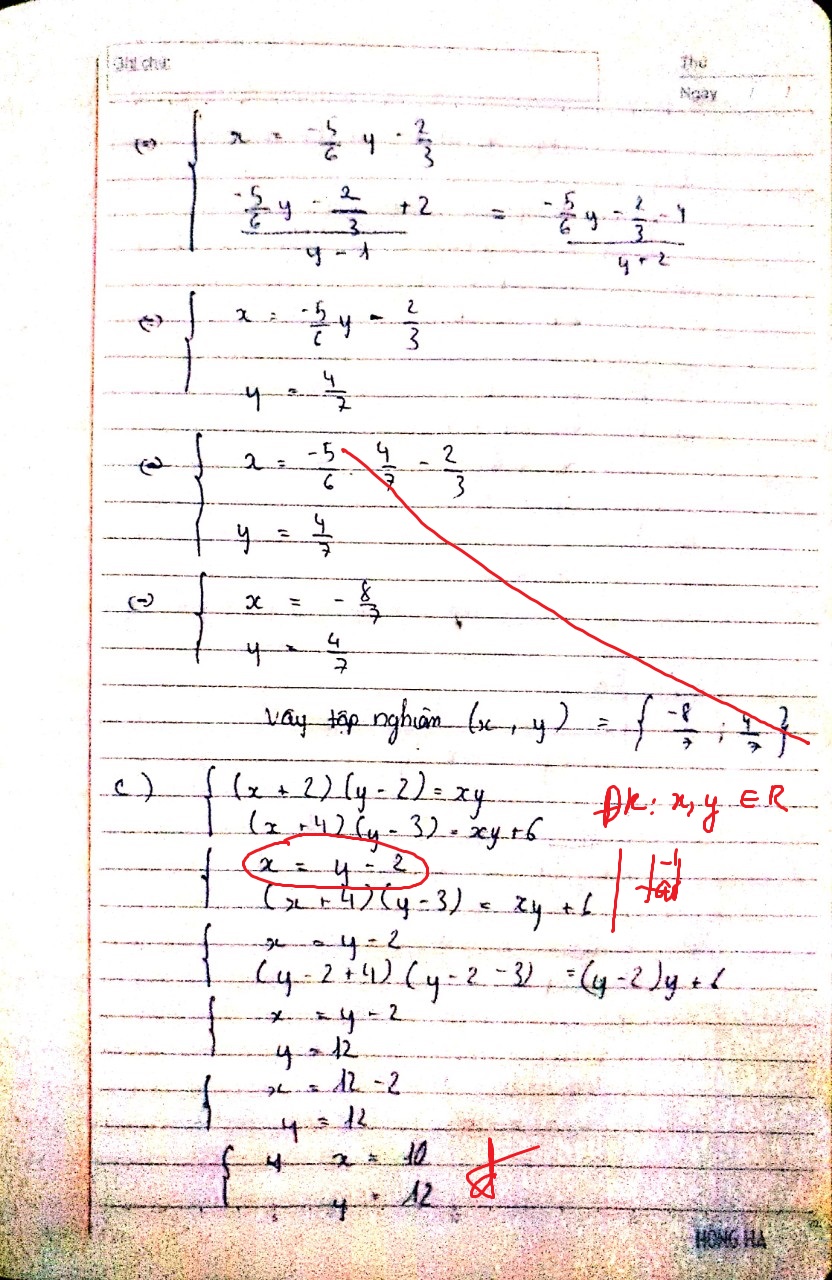 Ghi chú:
Thứ
Ngày / /
(=) { x = -5/6 y - 2/3
(-5/6 y - 2/3 + 2)/(y - 1) = (-5/6 y - 2/3 - 4)/(y + 2)
(=) { x = -5/6 y - 2/3
y = 4/7
(=) { x = -5/6 . 4/7 - 2/3
y = 4/7
(=) { x = - 8/7
y = 4/7
Vậy tập nghiệm (x, y) = { -8/7 ; 4/7 }
c) { (x + 2)(y - 2) = xy
(x + 4)(y - 3) = xy + 6
ĐK: x, y ∈ R
{ x = y - 2
(x + 4)(y - 3) = xy + 6
-1
{ x = y - 2
(y - 2 + 4)(y - 2 - 3) = (y - 2)y + 6
{ x = y - 2
y = 12
{ x = 12 - 2
y = 12
{ y x = 10
y = 12
HONG HA